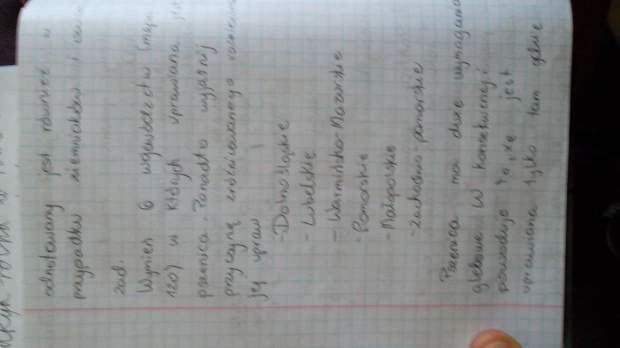 odnotowany jest również w
przypadku ziemniaków i
zad.
Wymień 6 województw (mapa
120) w których uprawiana jest
pszenica. Ponadto wyjaśnij
przyczynę zróżnicowanego
jej upraw
- Dolnośląskie
- Lubelskie
- Warmińsko-Mazurskie
- Pomorskie
- Małopolskie
- zachodnio-pomorskie
Pszenica ma duże wymagania
glebowe. W konsekwencji
powoduje to, że jest
uprawiana tylko tam gdzie